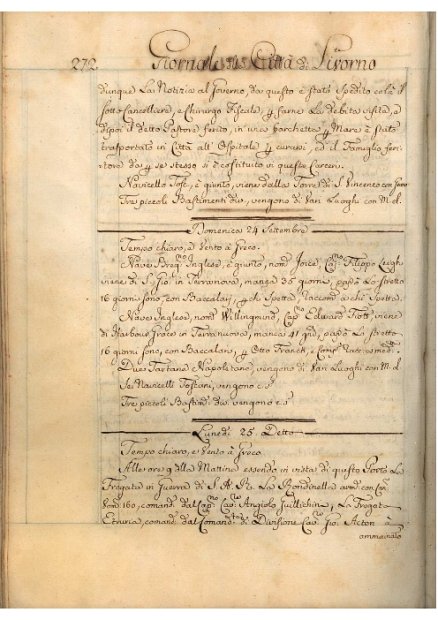 272. Giornale della Città di Livorno
dunque La Notizia al Governo, da questo è stato spedito colà il
Sotto Cancelliere, e Chirurgo Fiscale, p farne La debita visita, e
dipoi il detto Pastore ferito, in una barchetta p Mare è stato
trasportato in Città all' Ospitale p curarsi, ed il Famiglio feri-
tore da p se stesso si è costituito in queste Carceri.
Navicello Tosc. è giunto, viene dalla Torre di S. Vincenzo con
Tre piccoli Bastimenti div. vengono di Vari Luoghi con M. d.
Domenica 24 Settembre
Tempo chiaro, e Vento à Greco.
Nave Inglese, è giunto, nom. Joice, Cap.no Filippo Leigh
viene di S. Gio. in Terranuova, manca 35 giorni, passò Lo Stretto
16 giorni sono, con Baccalari, p chi Spetta, racc. a chi Spetta.
Nave Inglese, nom. Willingmind, Cap.no Edward Tott, viene
di Harbour Grace in Terranuova, manca 41 gni, passò Lo Stretto
16 giorni sono, con Baccalari, p Otto Franck, e Comp.
Due Tartane Napoletane, vengono di Vari Luoghi con M. d.
Sei Navicelli Toscani, vengono c. s.
Tre piccoli Bastim. div. vengono c. s.
Lunedì 25. Detto
Tempo chiaro, e Vento à Greco.
Alle ore 9 della Mattina essendo in vista di questo Porto La
Fregata in Guerra di S. A. R. La Rondinella arm. con
160, comand. dal Cap.no Angiolo, La Fregata
Etruria, comand. dal Comand.te di Divisione Cap.no Gio. Acton à
ammainato